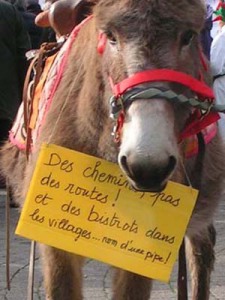 Des chemins, pas
des routes !
et des bistrots dans
les villages... nom d'une pipe !